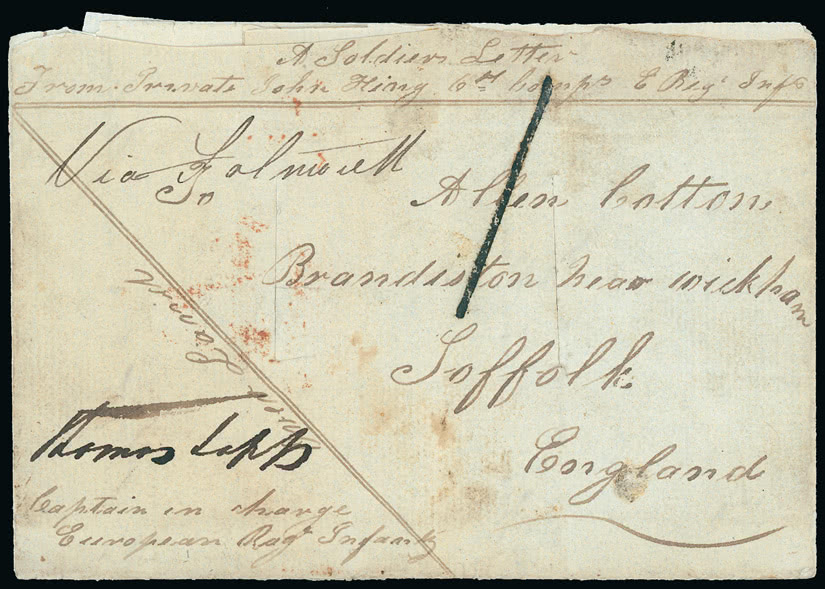 A Soldiers Letter
From Private John King 6th Compy E Regt Infy
Via Folmouth
Allen Cotton
Brandiston near wickham
Soffolk
England
Thomas
Captain in charge
European Regt Infantry